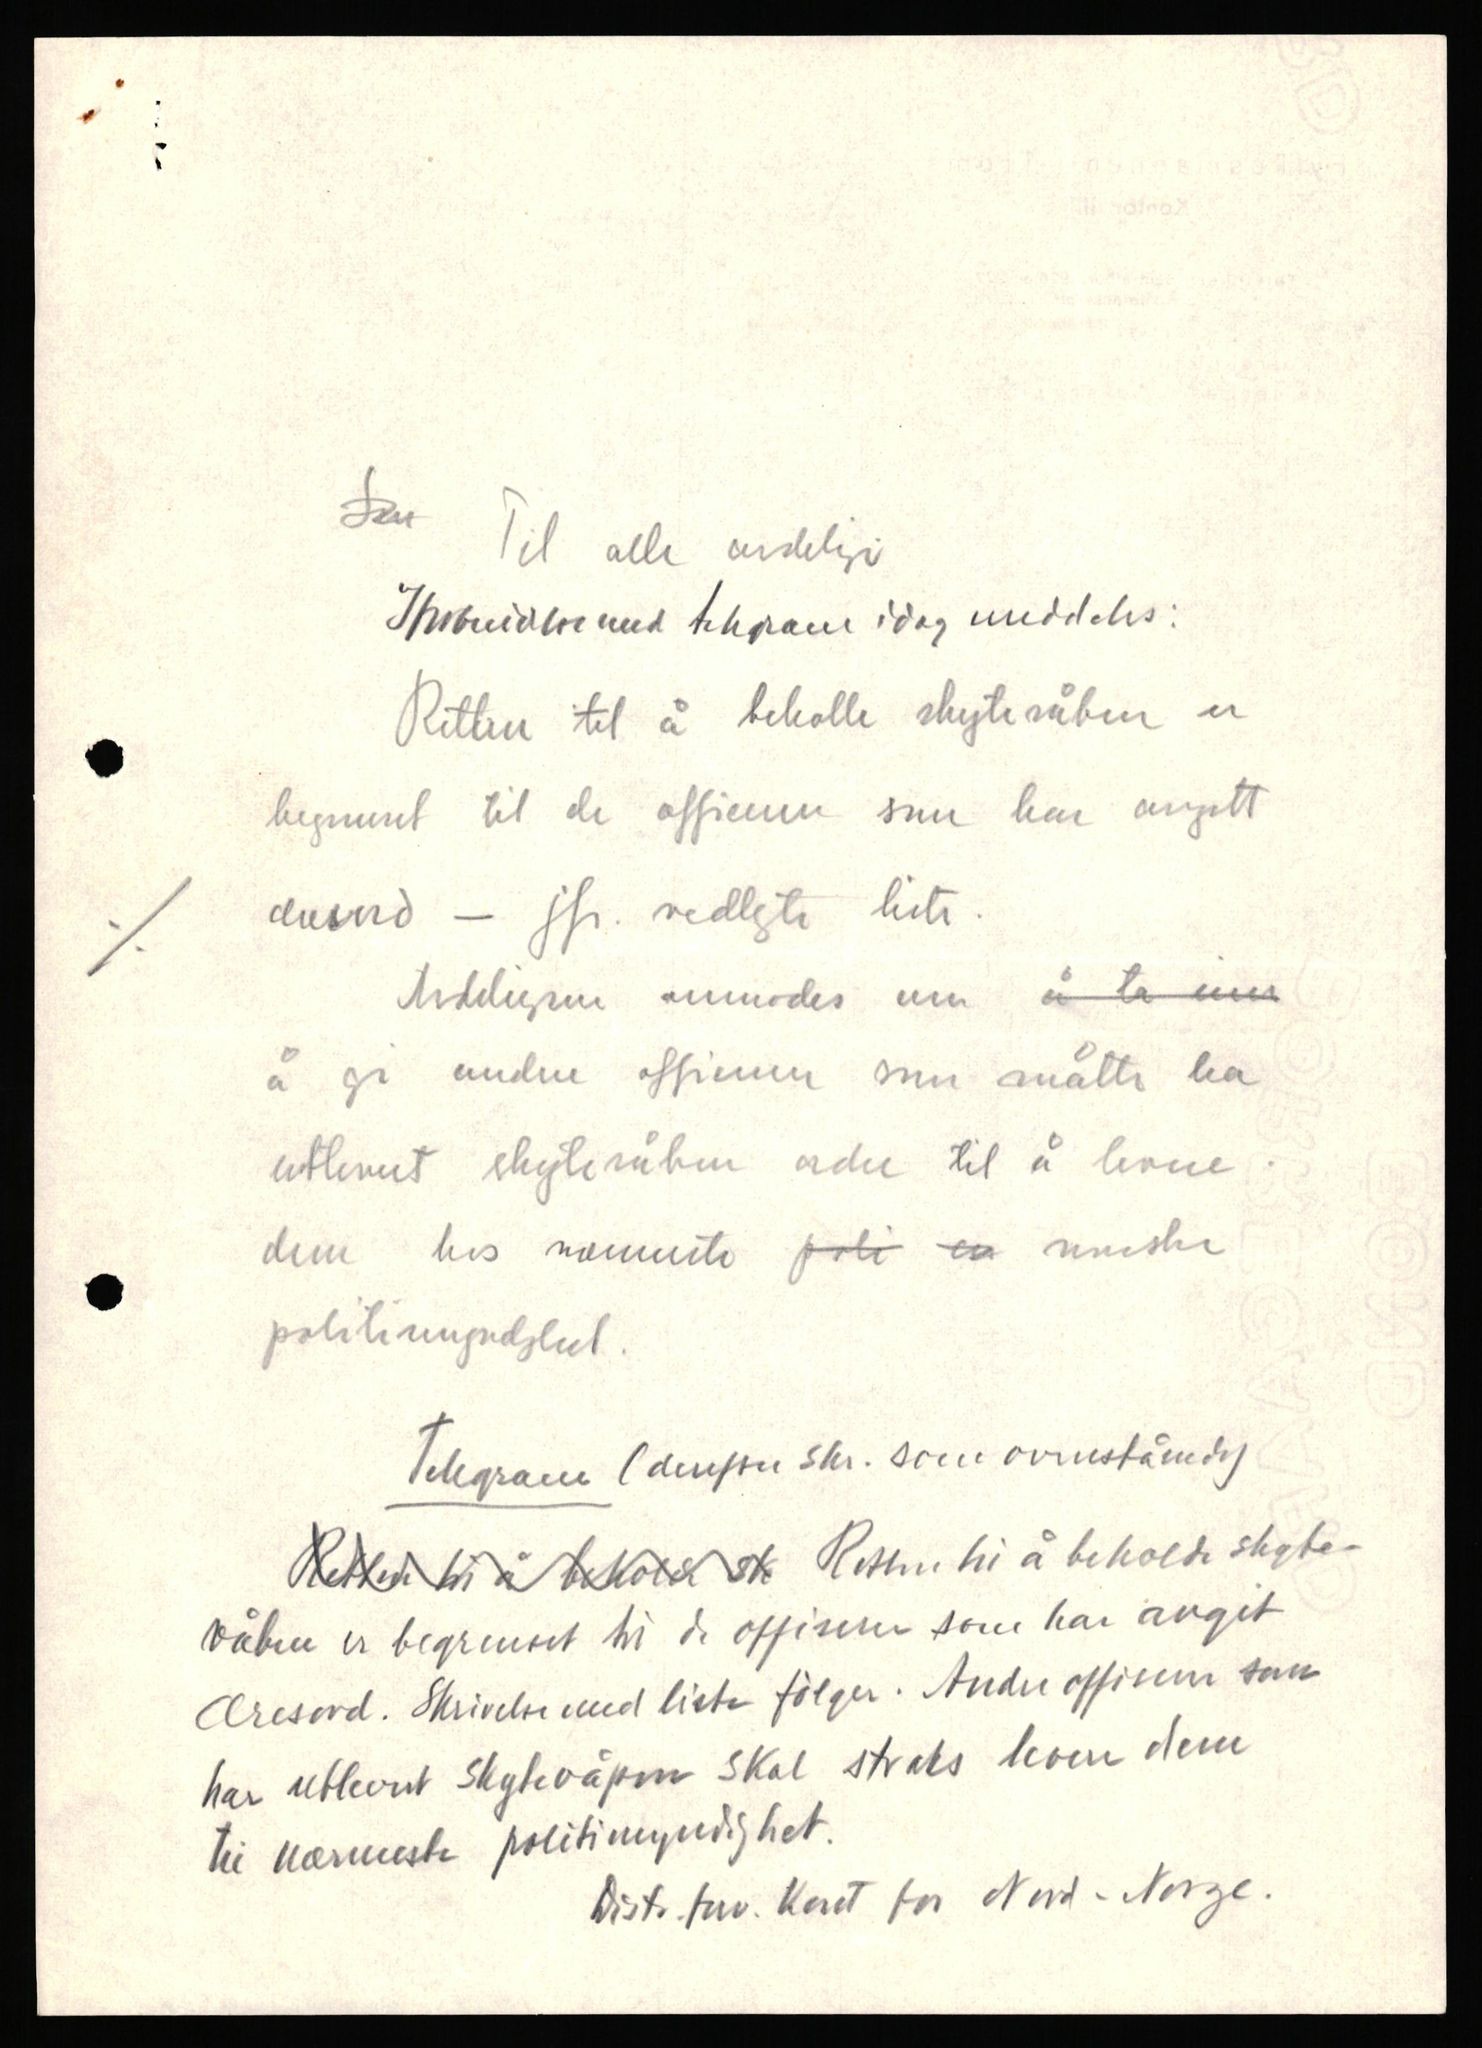 Til alle avdelinger
I henvidelse med telegram idag meddeles:
Retten til å beholde skytevåben er
begrenset til de officerer som har avgitt
æresord — jfr. vedlagte liste.
Avdelingene anmodes om å ta inn
å gi andre officerer som måtte ha
utlevert skytevåben ordre til å levere
dem hos nærmeste poli en norske
politimyndighet.
Telegram (den som skr. som ovenstående)
Retten til å beholde sk Retten til å beholde skyte-
våben er begrenset til de offiserer som har avgit
æresord. Skrivelse med liste følger. Andre offiserer som
har utlevert skytevåpen skal straks levere dem
til nærmeste politimyndighet.
Distr. kdo. for Nord-Norge.